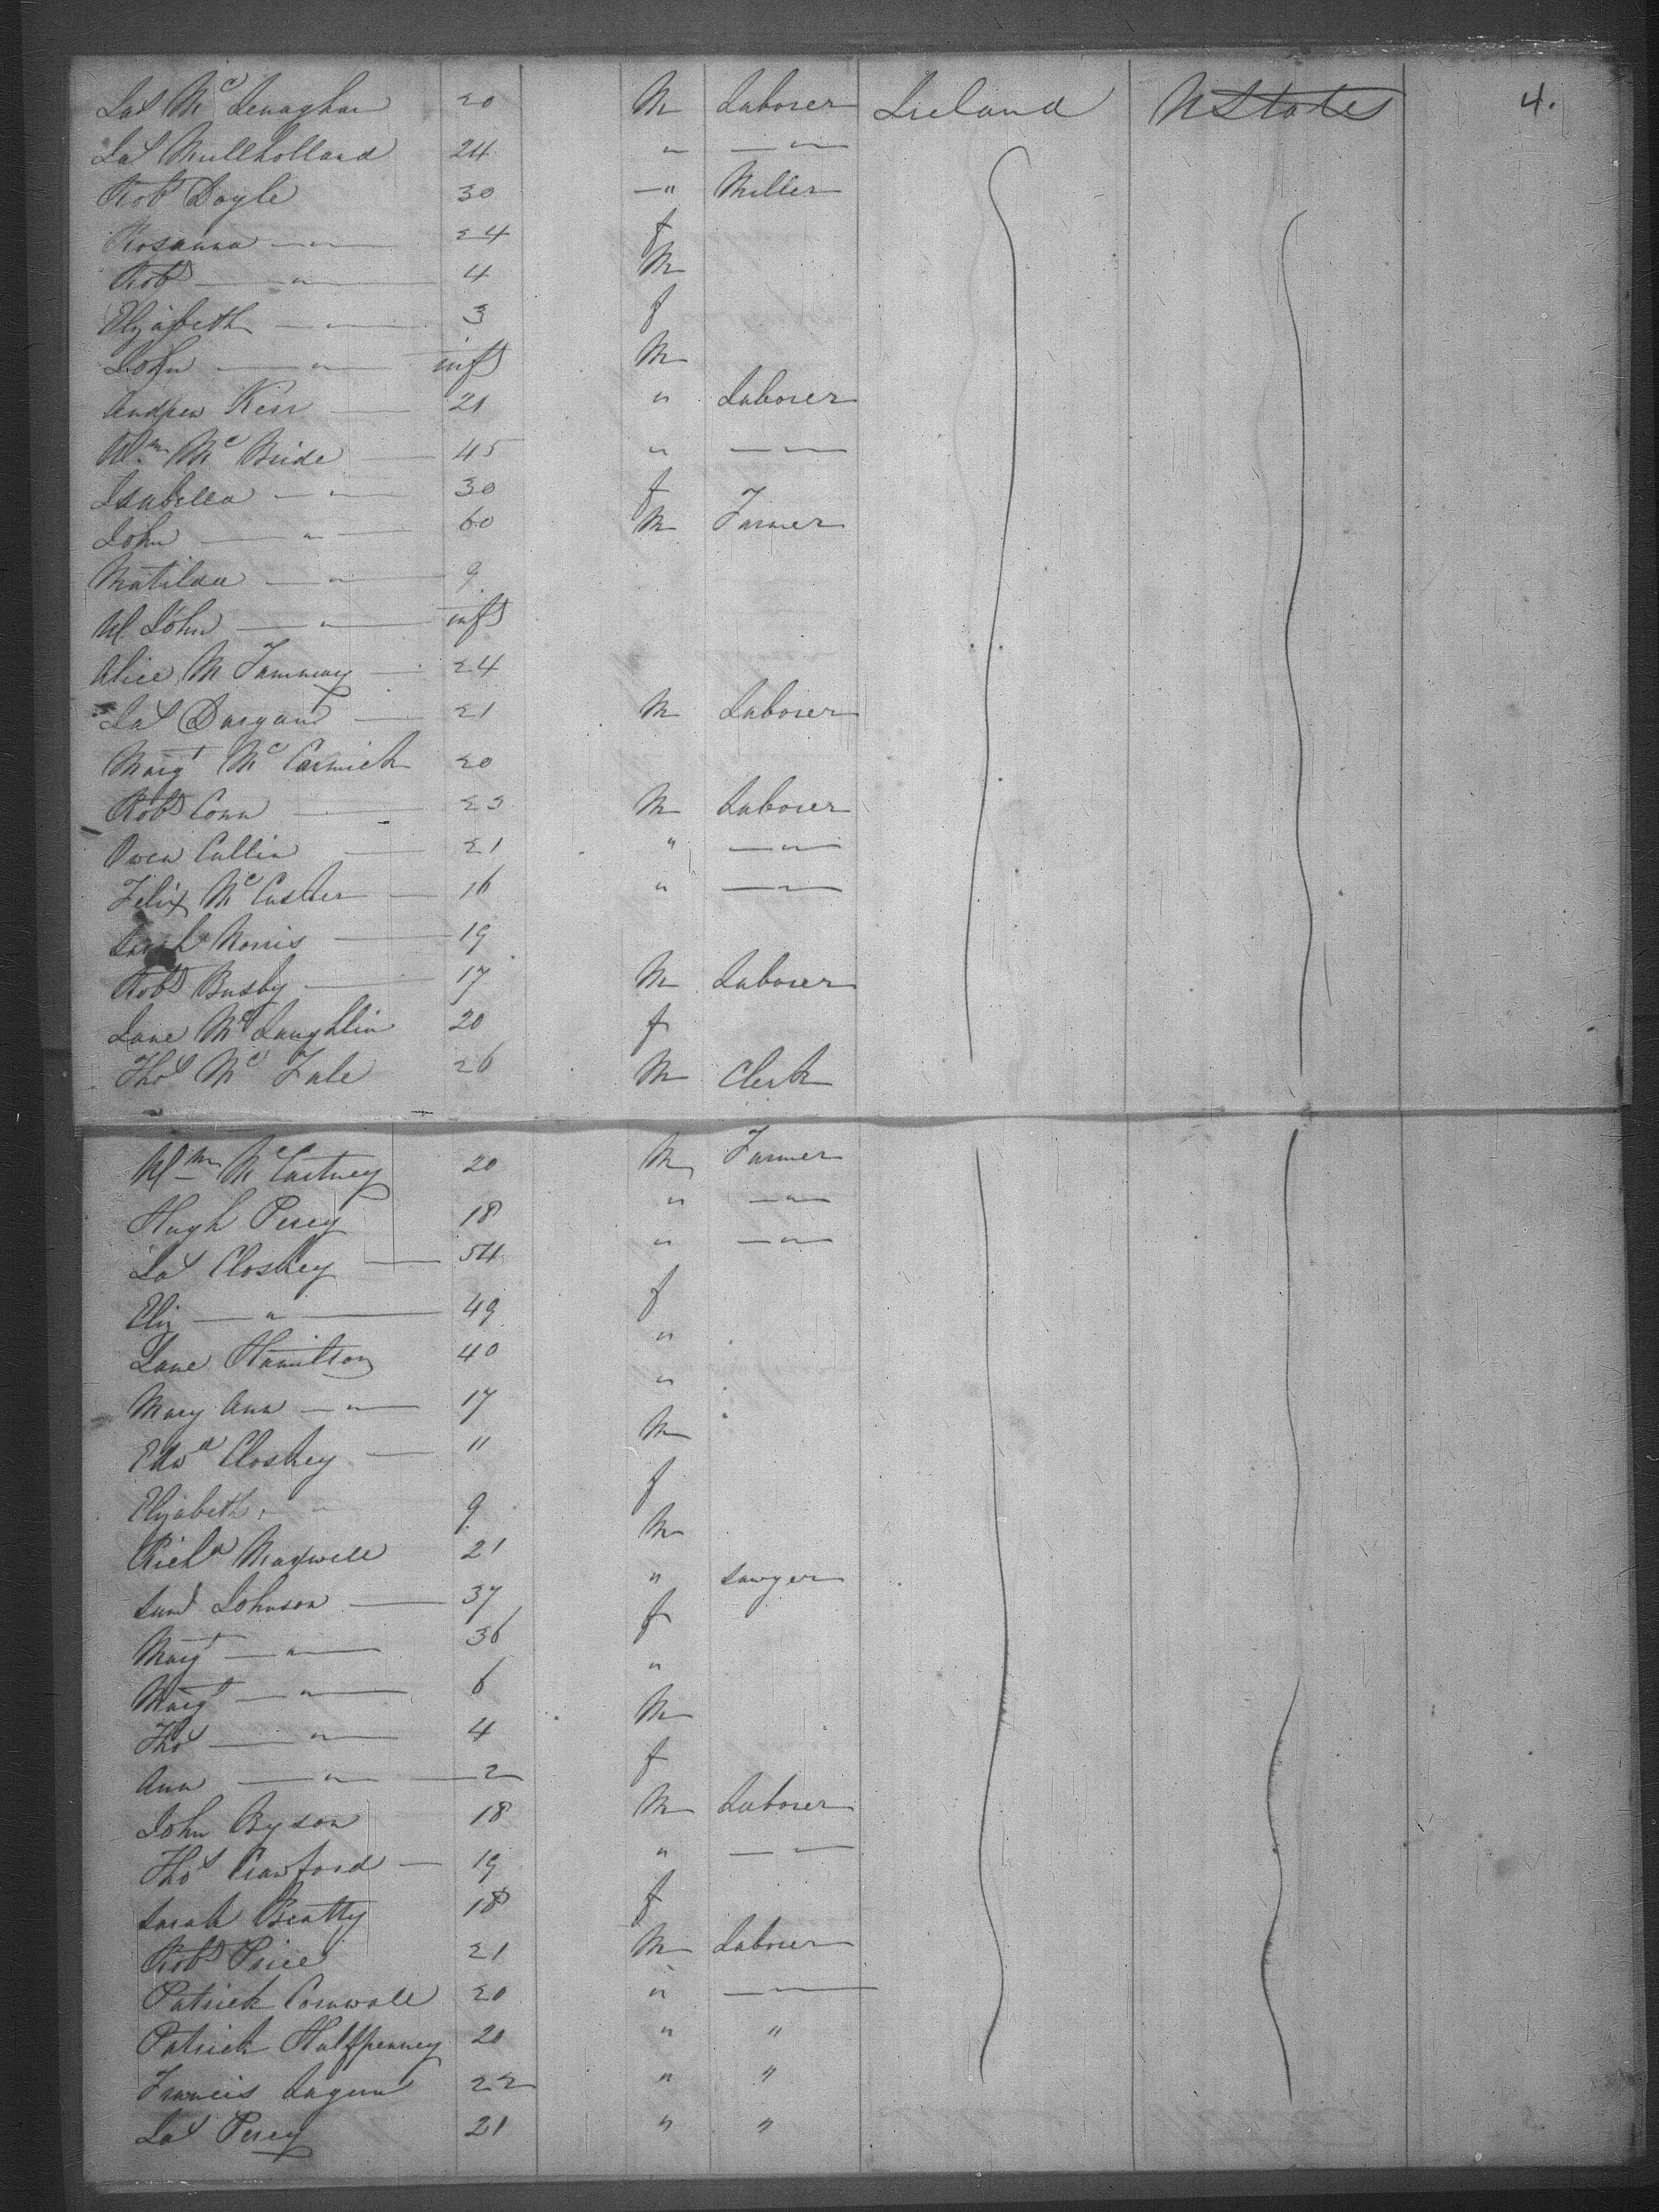 Jas Mc Lenaghan 20 M Laborer Ireland U States 4.
Jas Mullholland 24 " — " —
Robt Doyle 30 — " Miller
Rosanna — " — 24 f
Robt — " — 4 M
Elizabeth — " — 3 f
John — " — inft M
Andrew Kerr — 21 " Laborer
Wm Mc Bride — 45 " — " —
Isabella — " — 30 f
John — " — 60 M Farmer
Matilda — " — 9
W. John — " — inft
Alice M — 24
Jas Dargan — 21 M Laborer
Margt Mc Cormick 20
Robt Conn — 23 M Laborer
Owen Cullin — 21 " — " —
Felix Mc Cusker — 16 " — " —
Sarah Norris — 19
Robt Busby — 17 M Laborer
Jane Mc Laughlin 20 f
Thos Mc Fale 26 M Clerk
Wm Mc Cartney 20 M Farmer
Hugh Percy 18 " — " —
Jas Closkey — 54 " — " —
Eliz — " — 49 f
Jane Hamilton 40 "
Mary Ann — " — 17 "
Edwd Closkey — 11 M
Elizabeth " 9 f
Richd Maxwell 21 M
Saml Johnson — 37 " Sawyer
Margt — " — 36 f
Margt — " — 6 "
Thos — " — 4 M
Ann — " — 2 f
John Byson 18 M Laborer
Thos Crawford — 19 " — " —
Sarah Beatty 18 f
Robt Price 21 M Laborer
Patrick Cornwall 20 " — " —
Patrick Halfpenney 20 " "
Francis 22 " "
Jas Percy 21 " "